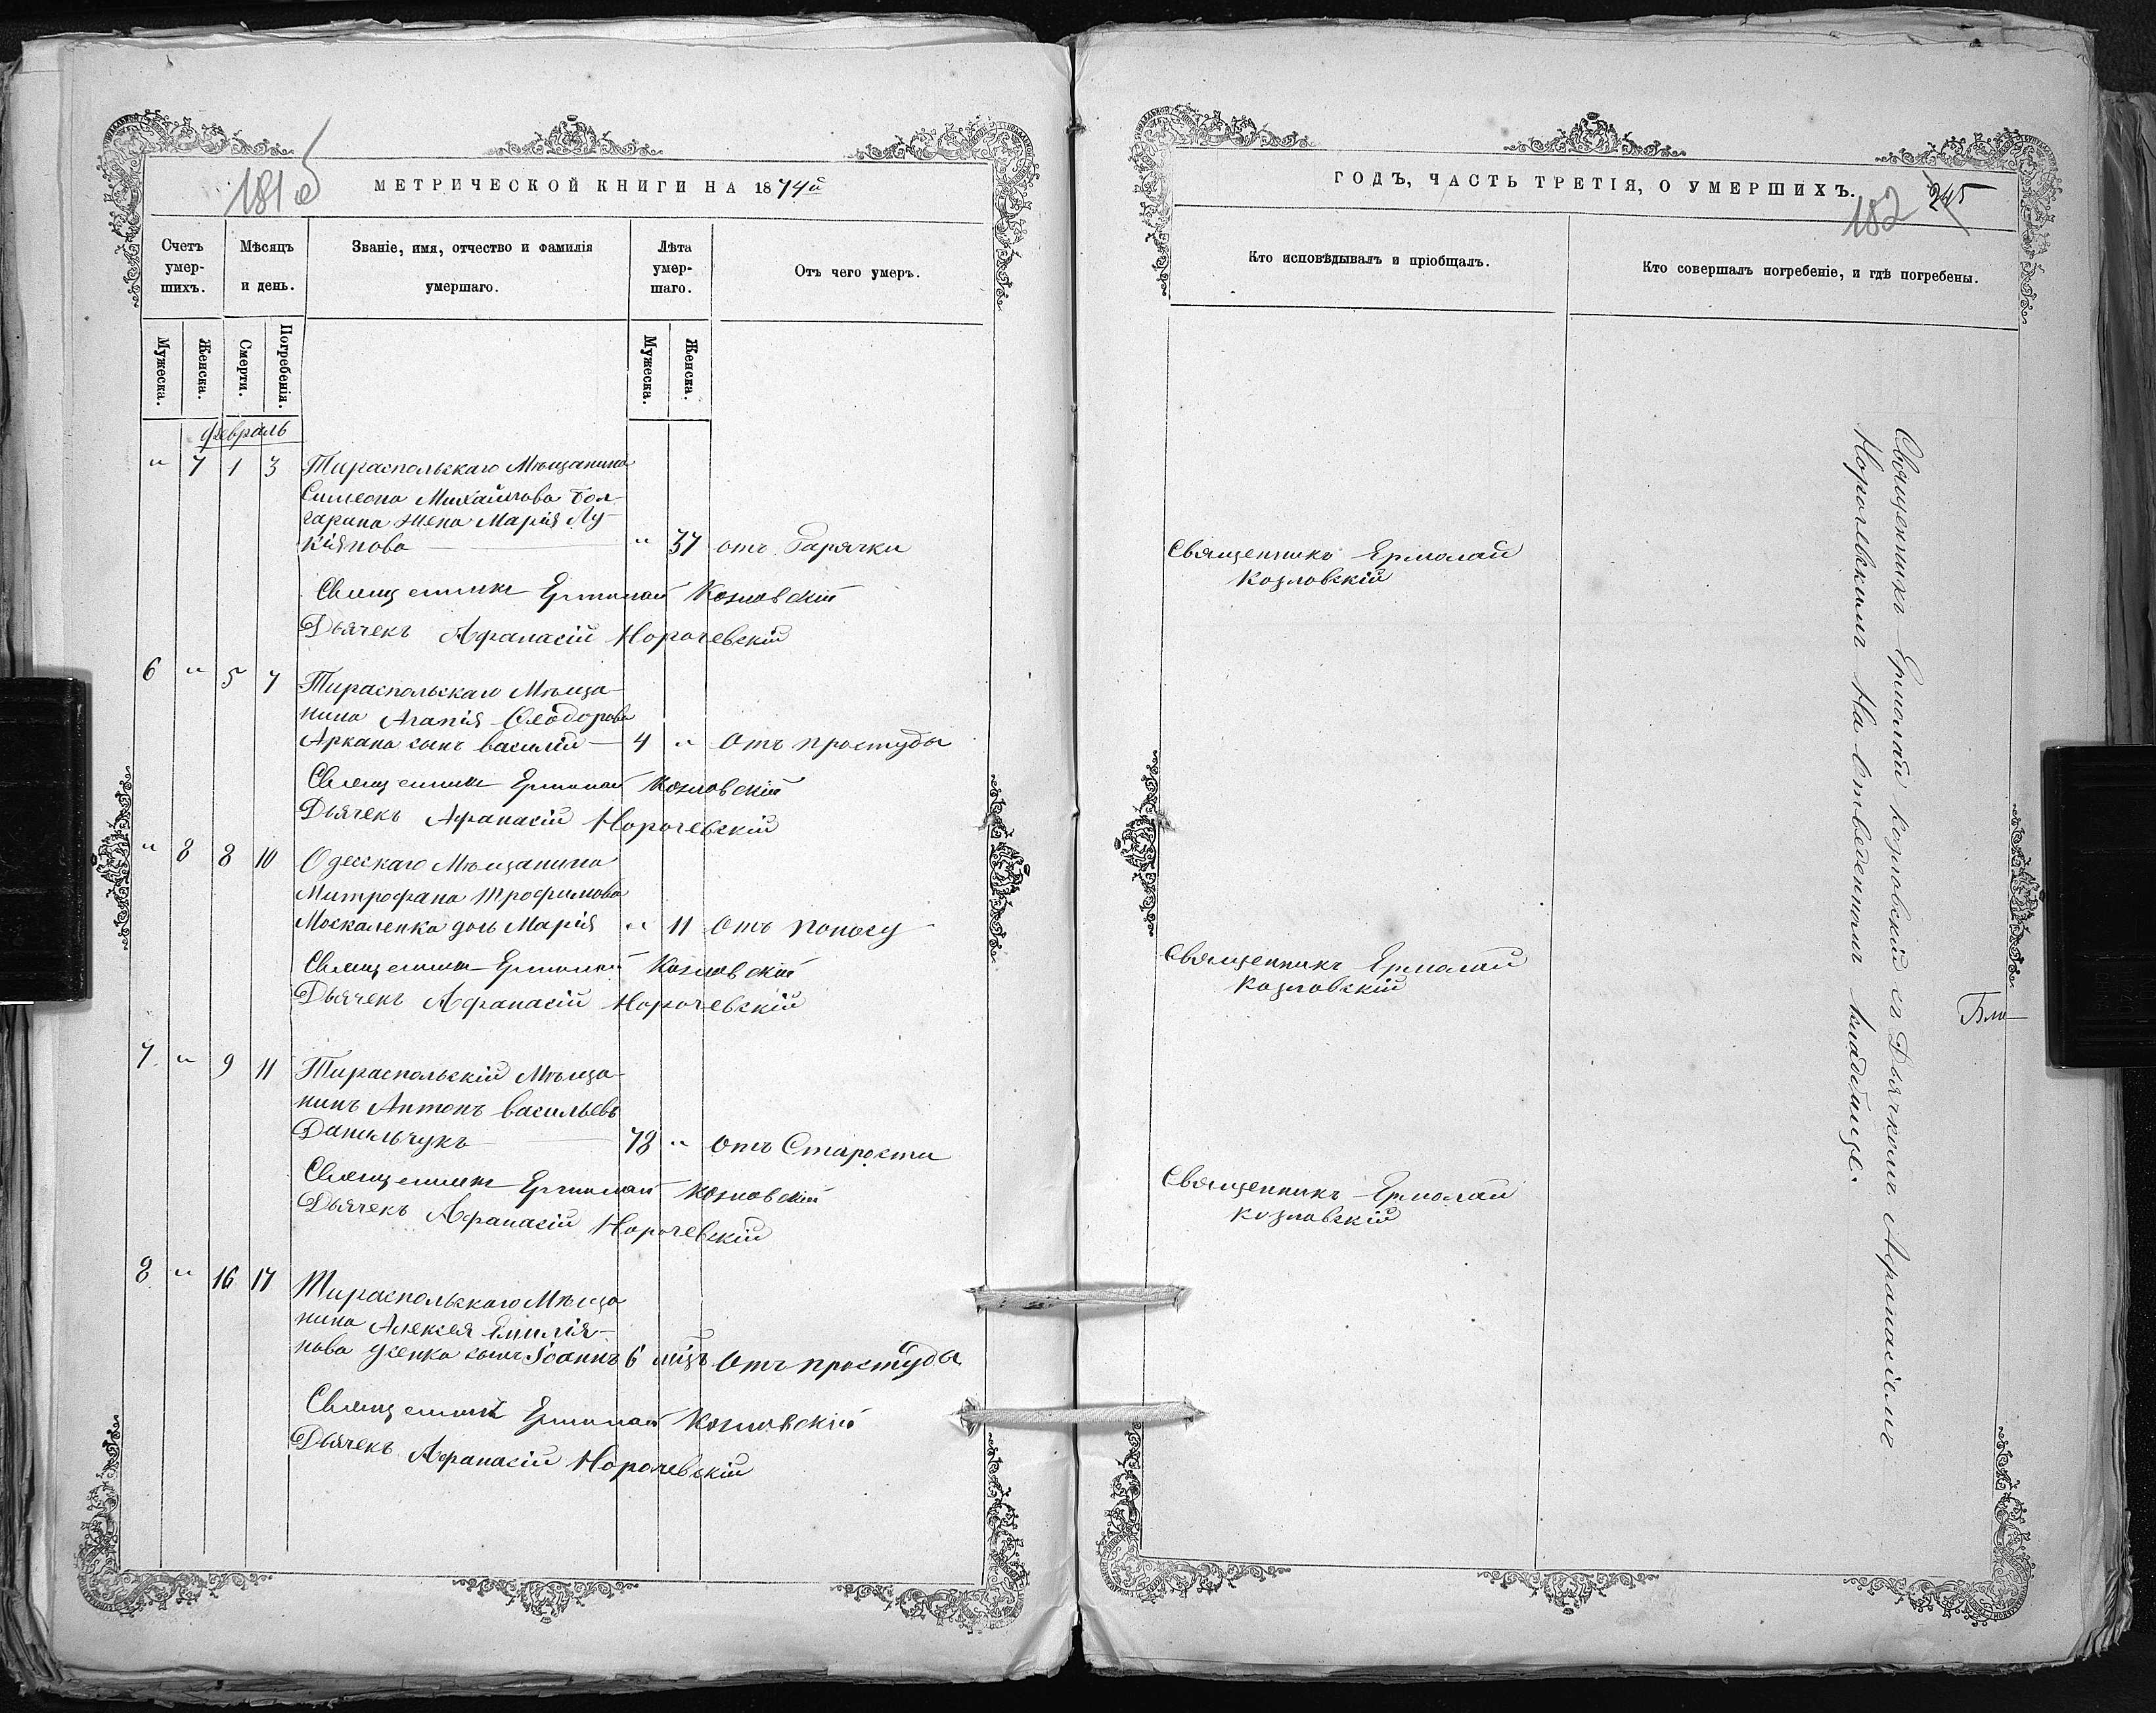 181 об
МЕТРИЧЕСКОЙ КНИГИ НА 1874й
Счетъ умер-шихъ.
Мѣсяцъ и день.
Званіе, имя, отчество и фамилія умершаго.
Лѣта умер-шаго.
Отъ чего умеръ.
Мужеска.
Женска.
Смерти.
Погребенія.
Мужеска.
Женска.
февраль
" 7 1 3 Тираспольскаго Мѣщанина
Симеона Михайлова Бол-
гарана жена Марія Лу-
кіянова " 37 отъ Гарячки
Священникъ Ермолай Козловскій
Дьячекъ Афанасій Норочевскій
6 " 5 7 Тираспольскаго Мѣща-
нина Агапія Ѳеодорова
Аркана сынъ василій 4 " Отъ простуды
Священникъ Ермолай Козловскій
Дьячекъ Афанасій Норочевскій
" 8 8 10 Одесскаго Мѣщанина
Митрофана Трофимова
Москаленка дочь Марія " 11 Отъ поносу
Священникъ Ермолай Козловскій
Дьячекъ Афанасій Норочевскій
7 " 9 11 Тираспольскій Мѣща-
нинъ Антонъ васильевъ
Данильчукъ 78 " Отъ Старости
Священникъ Ермолай Козловскій
Дьячекъ Афанасій Норочевскій
8 " 16 17 Тираспольскаго Мѣща
нина Алексея Емилія-
нова Усенка сынъ Іоаннъ 6 мцъ Отъ простуды
Священникъ Ермолай Козловскій
Дьячекъ Афанасій Норочевскій
ГОДЪ, ЧАСТЬ ТРЕТІЯ, О УМЕРШИХЪ.
182
245
Кто исповѣдывалъ и пріобщалъ.
Кто совершалъ погребеніе, и гдѣ погребены.
Священникъ Ермолай
Козловскій
Священникъ Ермолай
Козловскій
Священникъ Ермолай
Козловскій
Священникъ Ермолай Козловскій съ Дьячкомъ Афанасіемъ
Норочевскимъ На Отведенномъ кладбище.